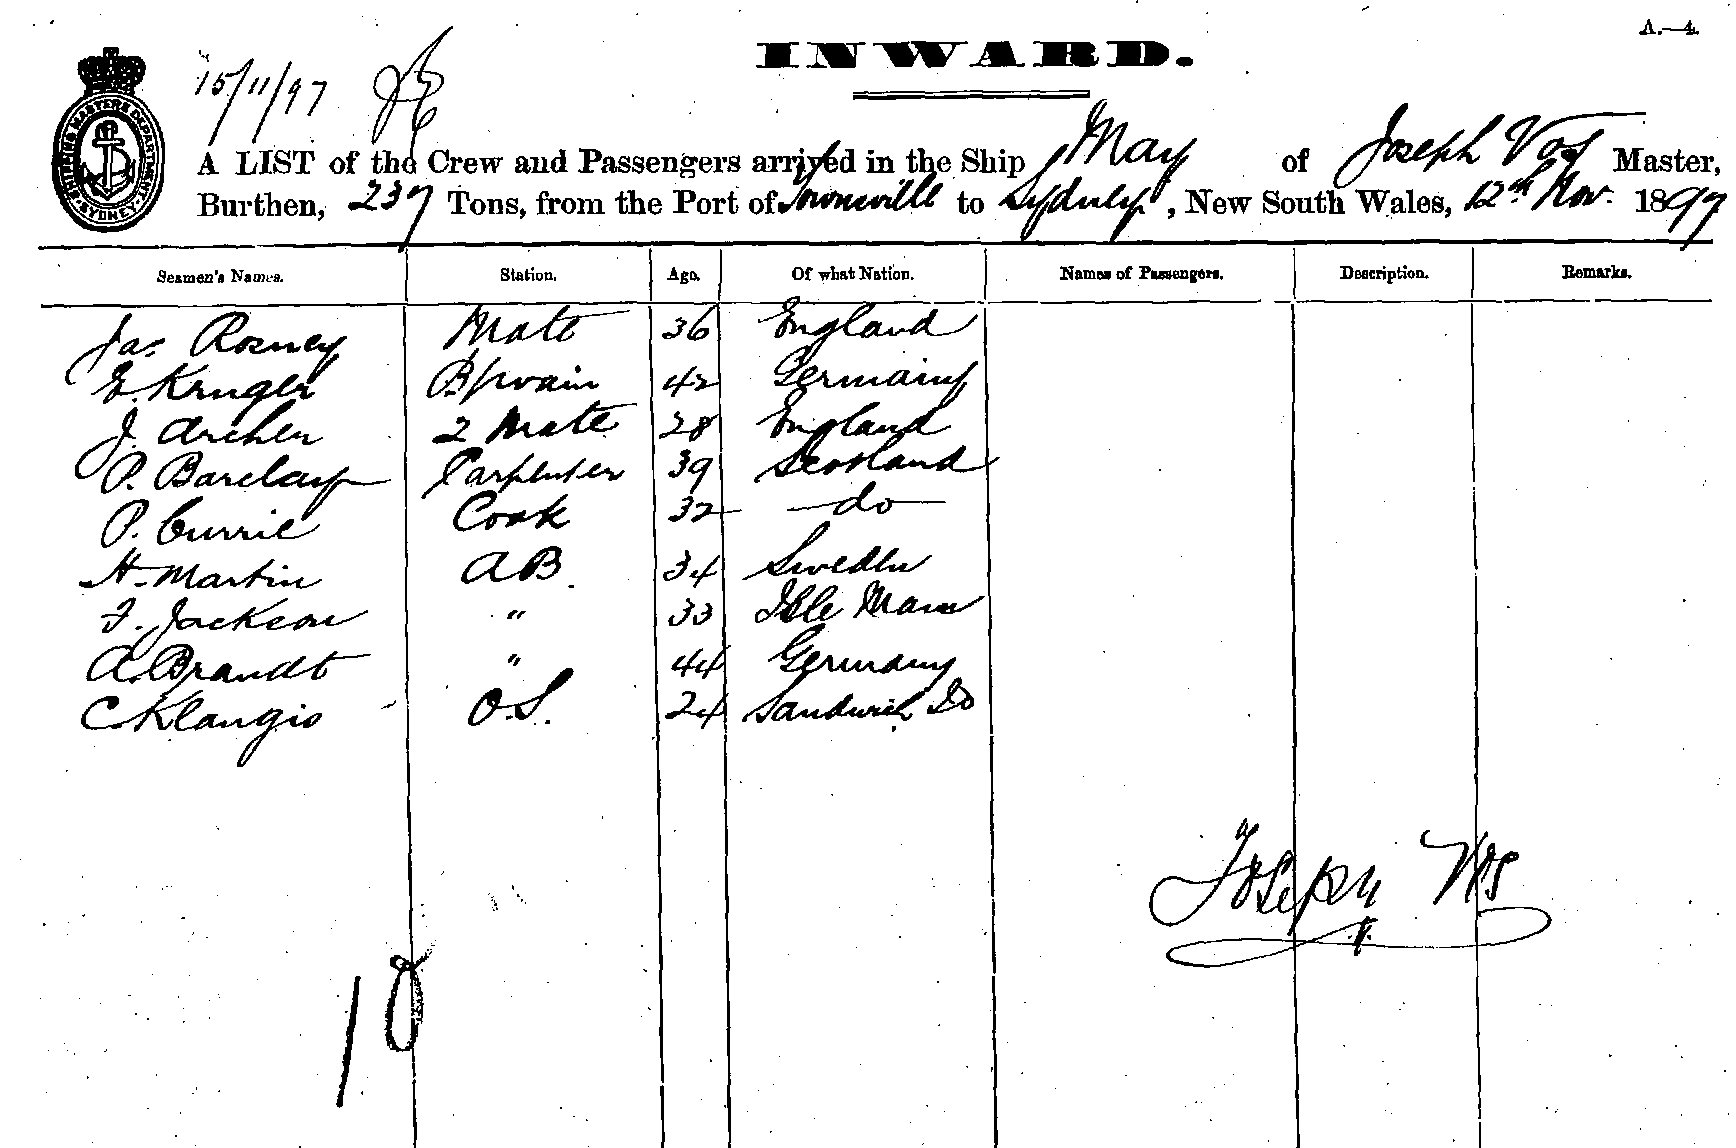 A.—4.
INWARD.
15/11/97
SHIPPING MASTERS DEPARTMENT SYDNEY
A LIST of the Crew and Passengers arrived in the Ship May of Joseph Vos Master,
Burthen, 237 Tons, from the Port of Townsville to Sydney, New South Wales, 12th Nov. 1897
Seamen's Names. Station. Age. Of what Nation. Names of Passengers. Description. Remarks.
Jas Rosney Mate 36 England
E. Kruger 42 Germany
J. Archer 2 Mate 28 England
P. Barclay Carpenter 39 Scotland
P. Currie Cook 32 —do—
H. Martin AB. 34 Sweden
F. Jackson " 33 Isle Man
A. Brandt " 44 Germany
C Klangio O.S. 24 Sandwich Is
Joseph Vos
10